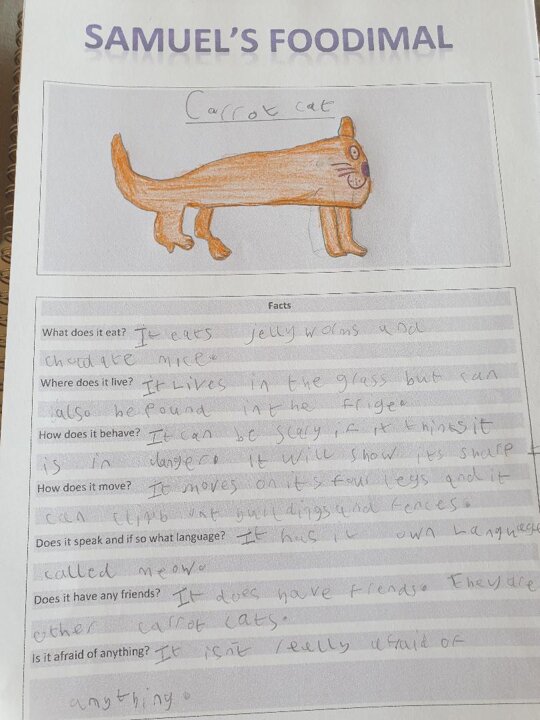 SAMUEL'S FOODIMAL
Carrot cat
Facts
What does it eat? It eats jelly worms and
choclate mice.
Where does it live? It Lives in the grass but can
also be found in the frige.
How does it behave? It can be scary if it thinks it
is in danger. It will show its sharp
How does it move? It moves on it's four legs and it
can climb buildings and fences.
Does it speak and if so what language? It has it own Language
called meow.
Does it have any friends? It does have friends. They are
other carrot cats.
Is it afraid of anything? It isn't really afraid of
anything.